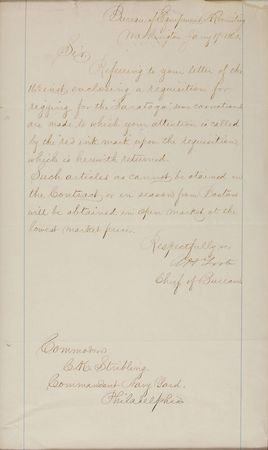 Bureau of Equipment & Recruiting
Washington Jany 17 186
Sir,
Referring to your letter of the
inst, enclosing a requisition for
rigging for the Saratoga, some alterations
are made, to which your attention is called
by the "red ink mark" upon the requisition
which is herewith returned.
Such articles as cannot be obtained in
the Contract, or in season from Boston
will be obtained in open market, at the
lowest market price.
Respectfully &c
Chief of Bureau
Commodore
C.K. Stribling,
Commandant Navy Yard,
Philadelphia